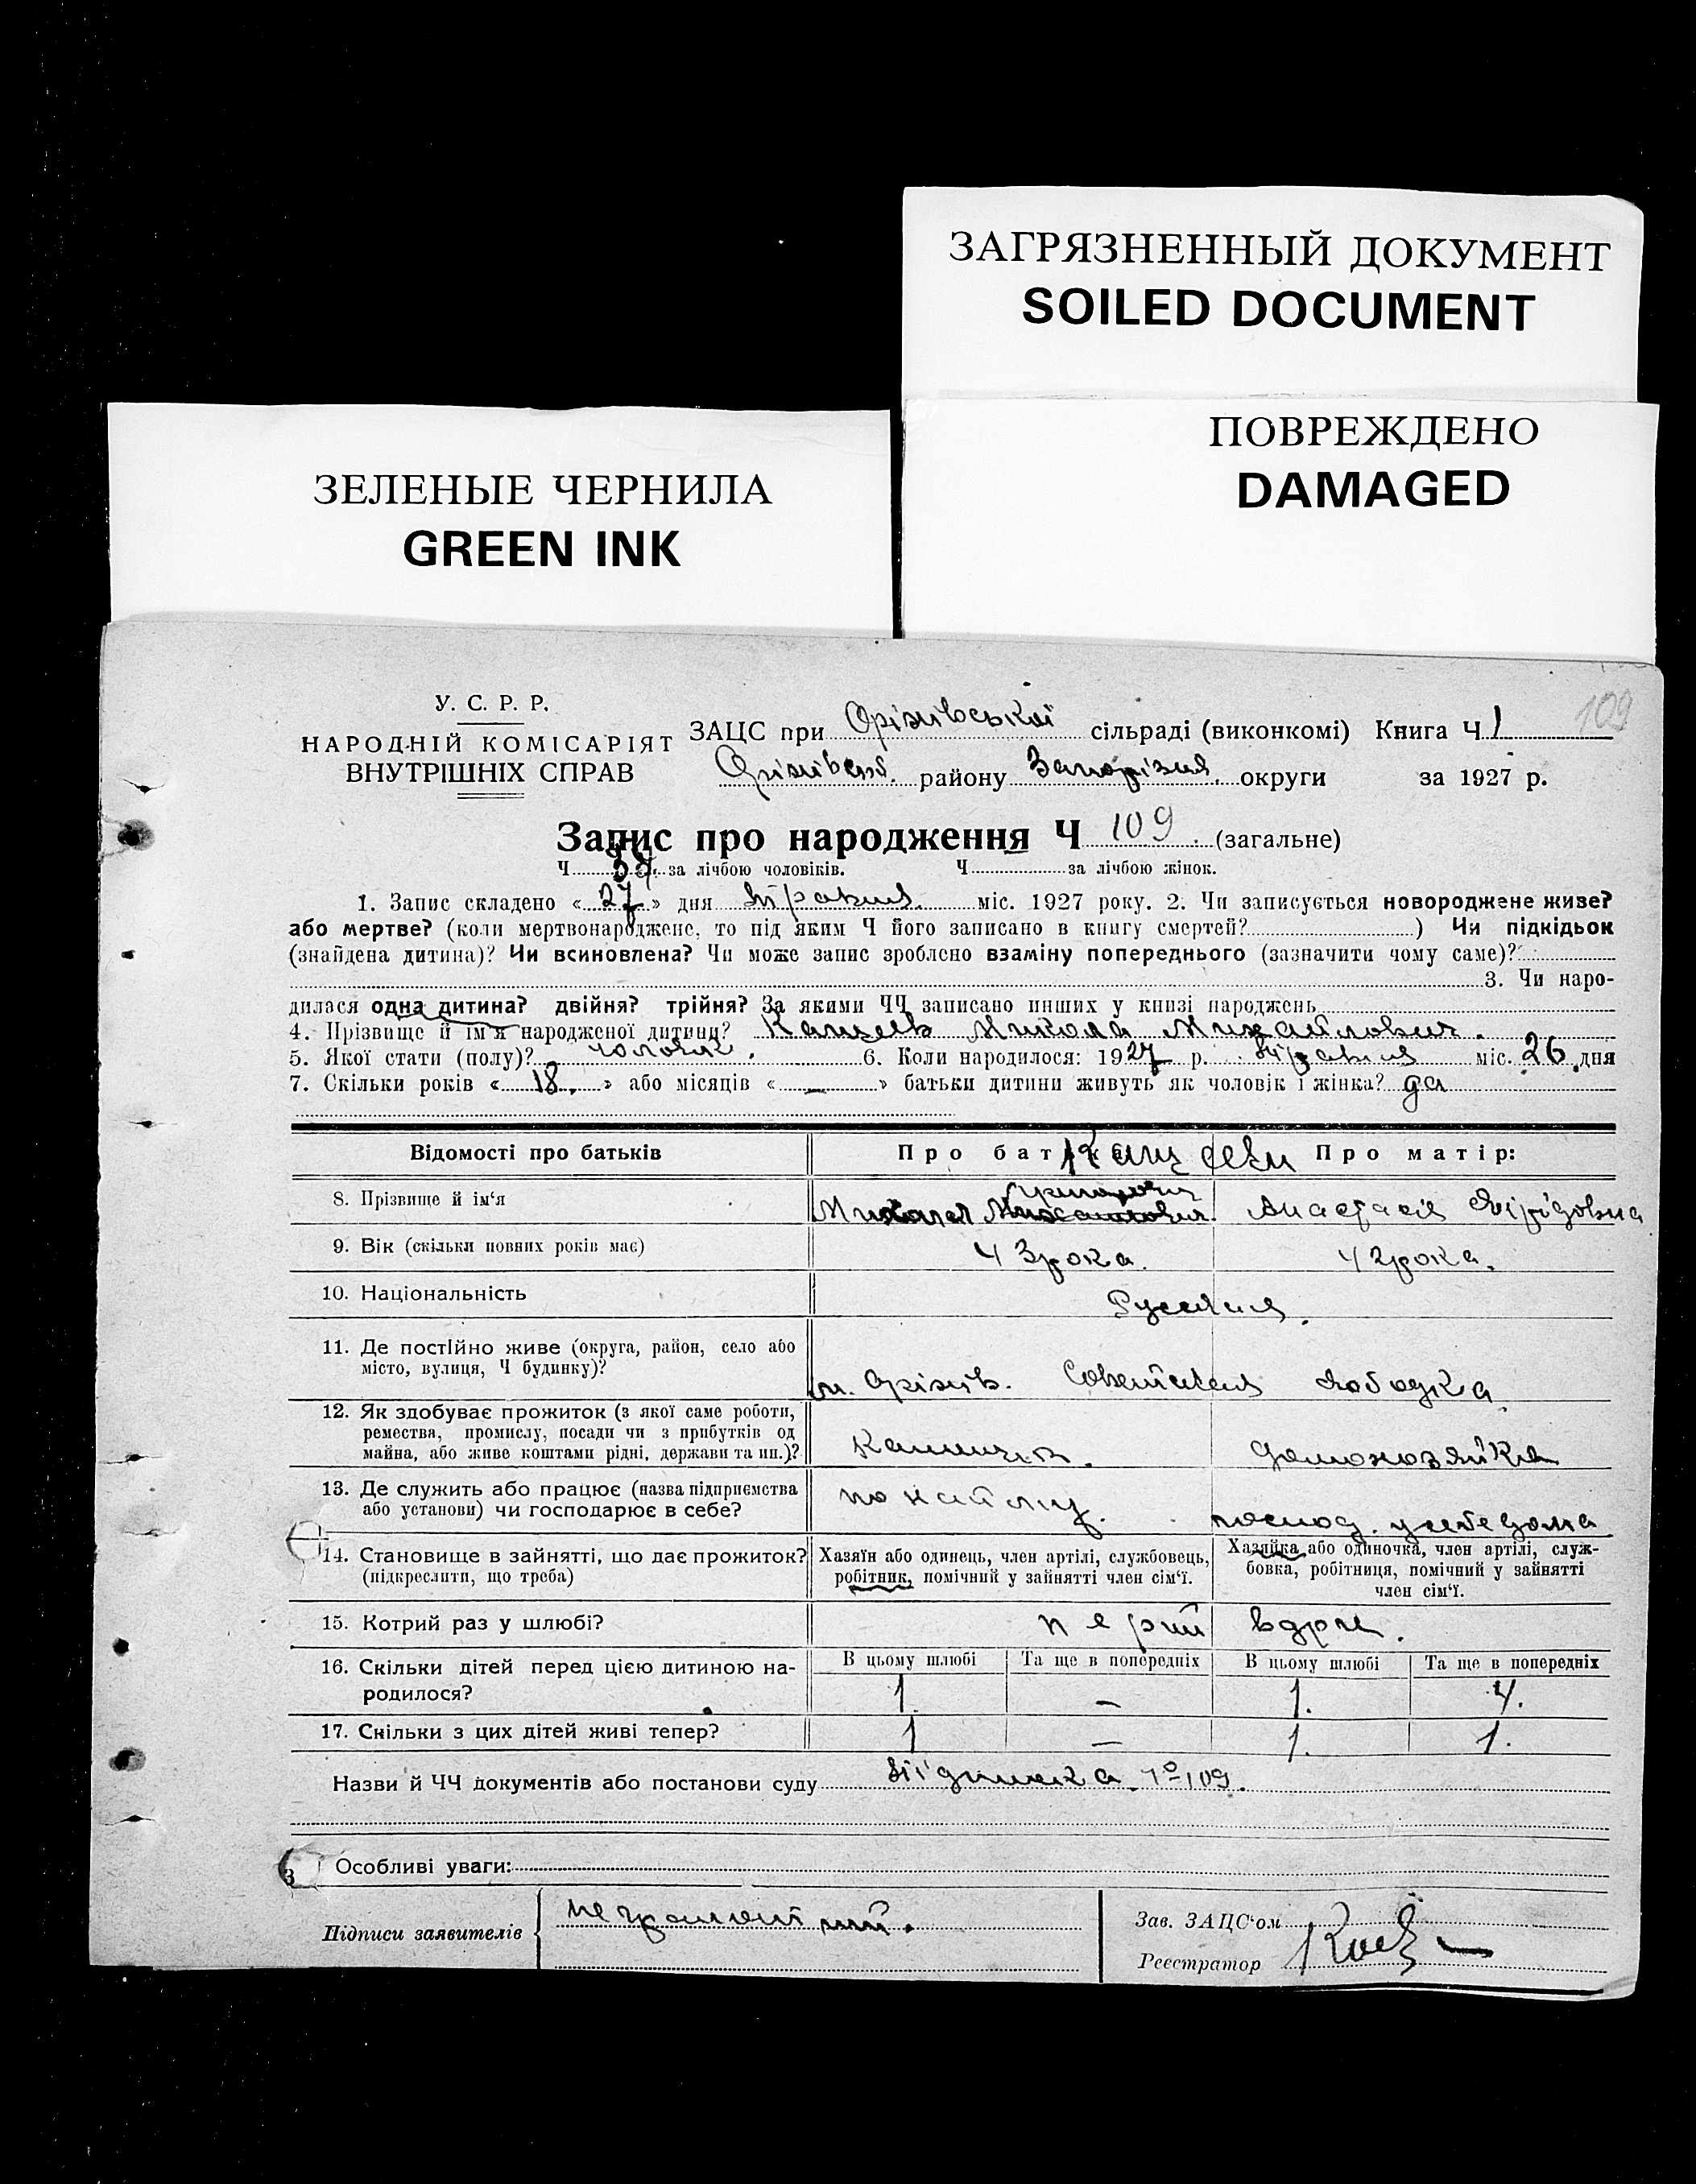 ЗАГРЯЗНЕННЫЙ ДОКУМЕНТ
SOILED DOCUMENT
ПОВРЕЖДЕНО
DAMAGED
ЗЕЛЕНЫЕ ЧЕРНИЛА
GREEN INK
109
У. С. Р. Р.
НАРОДНІЙ КОМІСАРІЯТ
ВНУТРІШНІХ СПРАВ
ЗАЦС при Оріхівської сільраді (виконкомі) Книга Ч 1
Оріхівськ. району Запоріжж. округи за 1927 р.
Запис про народження Ч 109. (загальне)
Ч за лічбою чоловіків. Ч за лічбою жінок.
1. Запис складено « 27 » дня міс. 1927 року. 2. Чи записується новороджене живе?
або мертве? (коли мертвонароджене, то під яким Ч його записано в книгу смертей? ) Чи підкідьок
(знайдена дитина)? Чи всиновлена? Чи може запис зроблено взаміну попереднього (зазначити чому саме)?
3. Чи наро-
дилася одна дитина? двійня? трійня? За якими ЧЧ записано инших у книзі народжень
4. Прізвище й ім'я народженої дитини? Микола Михайлович.
5. Якої стати (полу)? чоловік. 6. Коли народилося: 1927 р. міс. 26 дня
7. Скільки років « 18. » або місяців « — » батьки дитини живуть як чоловік і жінка? да
Відомості про батьків Про батька Про матір:
8. Прізвище й ім'я Анастасія
9. Вік (скільки повних років має) 43 рока. 42 рока.
10. Національність
11. Де постійно живе (округа, район, село або
місто, вулиця, Ч будинку)? м. Оріхів. слободка
12. Як здобуває прожиток (з якої саме роботи,
ремества, промислу, посади чи з прибутків од
майна, або живе коштами рідні, держави та ин.)? домохозяйка
13. Де служить або працює (назва підприємства
або установи) чи господарює в себе? по найму. господ. у себе дома
14. Становище в зайнятті, що дає прожиток?
(підкреслити, що треба)
Хазяїн або одинець, член артілі, службовець,
робітник, помічний у зайнятті член сім'ї.
Хазяйка або одиночка, член артілі, служ-
бовка, робітниця, помічний у зайнятті
член сім'ї.
15. Котрий раз у шлюбі?
16. Скільки дітей перед цією дитиною на-
родилося?
В цьому шлюбі Та ще в попередніх В цьому шлюбі Та ще в попередніх
1. — 1. 4.
17. Скільки з цих дітей живі тепер? 1 — 1. 1.
Назви й ЧЧ документів або постанови суду №109.
Особливі уваги:
Підписи заявителів
Зав. ЗАЦС'ом
Реєстратор